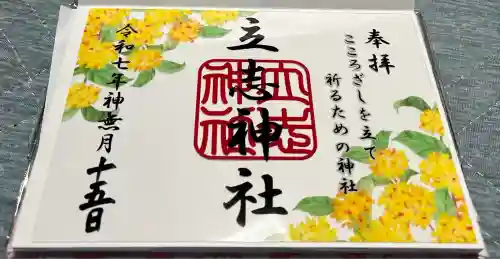 奉拝
こころざしを立て
祈るための神社
立志神社
立志神社
令和七年神無月十五日